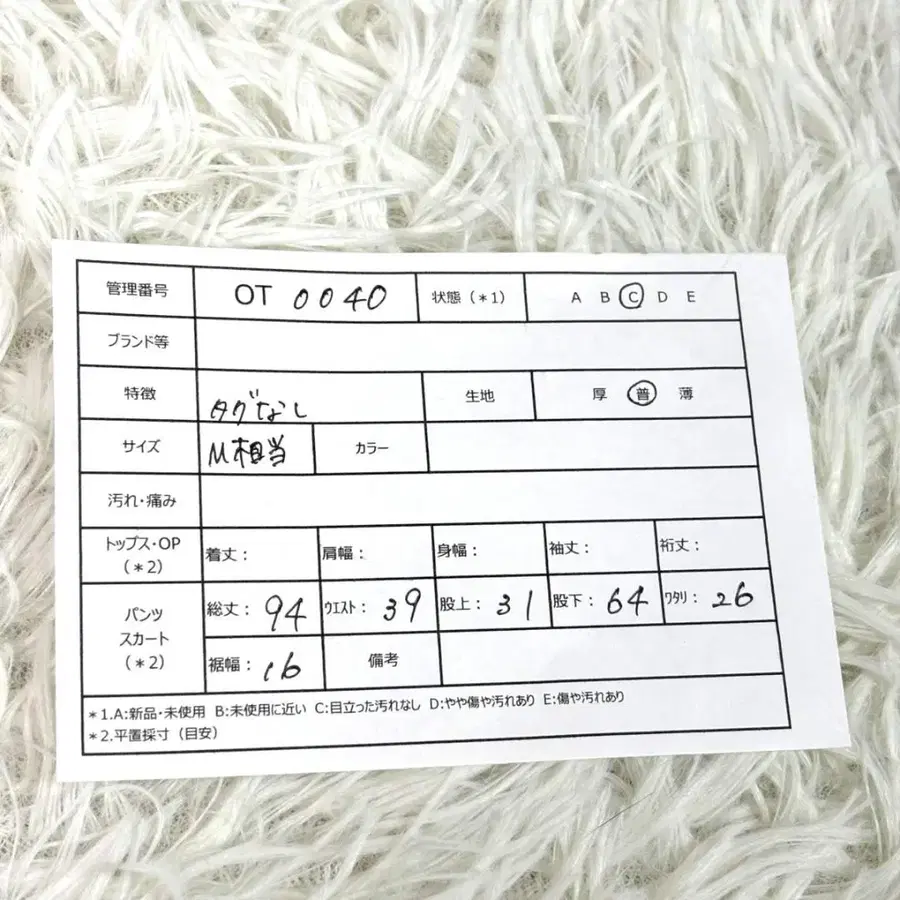 管理番号 OT 0040 状態（*1） A B C D E
ブランド等
特徴 タグなし 生地 厚 普 薄
サイズ M相当 カラー
汚れ・痛み
トップス・OP
（*2）
着丈： 肩幅： 身幅： 袖丈： 裄丈：
パンツ
スカート
（*2）
総丈：94 ウエスト：39 股上：31 股下：64 ワタリ：26
裾幅：16 備考
*1.A:新品・未使用 B:未使用に近い C:目立った汚れなし D:やや傷や汚れあり E:傷や汚れあり
*2.平置採寸（目安）